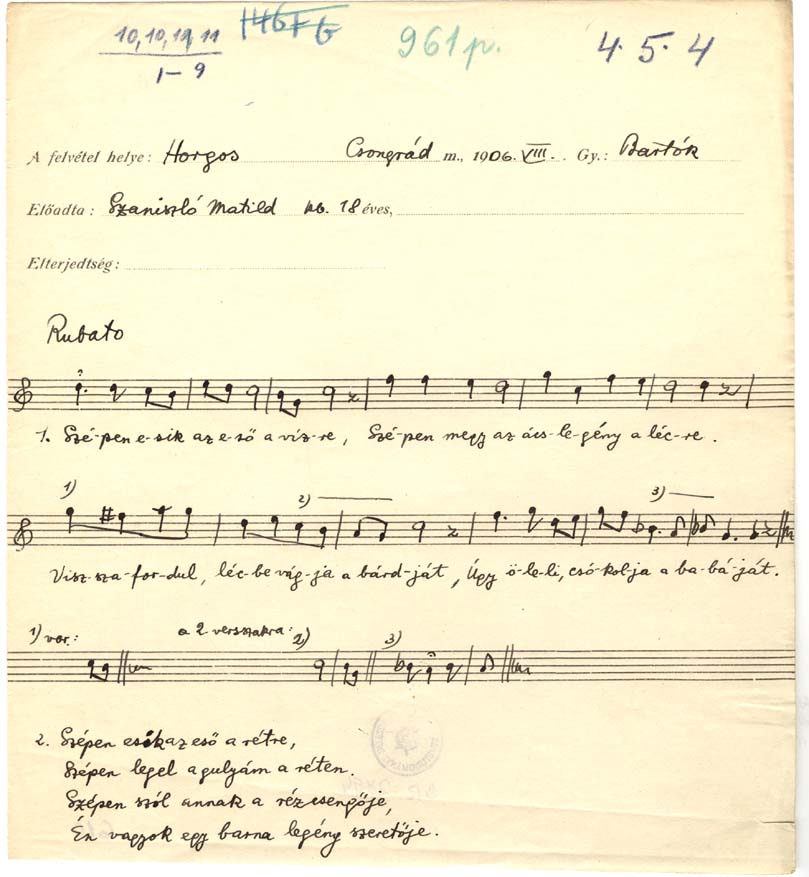 10, 10, 11, 11
1-9
961p.
4. 5. 4
A felvétel helye: Horgos Csongrád m., 1906. VIII. Gy.: Bartók
Előadta: Szaniszló Matild kb. 18 éves,
Elterjedtség:
Rubato
1. Szé-pen e-sik az e-ső a víz-re, Szé-pen megy az ács-le-gény a léc-re.
1) 2) 3)
Visz-sza-for-dul, léc-be vág-ja a bárd-ját, Úgy ö-le-li, csó-kol-ja a ba-bá-ját.
1) var.: a 2 versszakra: 2) 3)
2. Szépen esik az eső a rétre,
Szépen legel a gulyám a réten.
Szépen szól annak a rézcsengője,
Én vagyok egy barna legény szeretője.